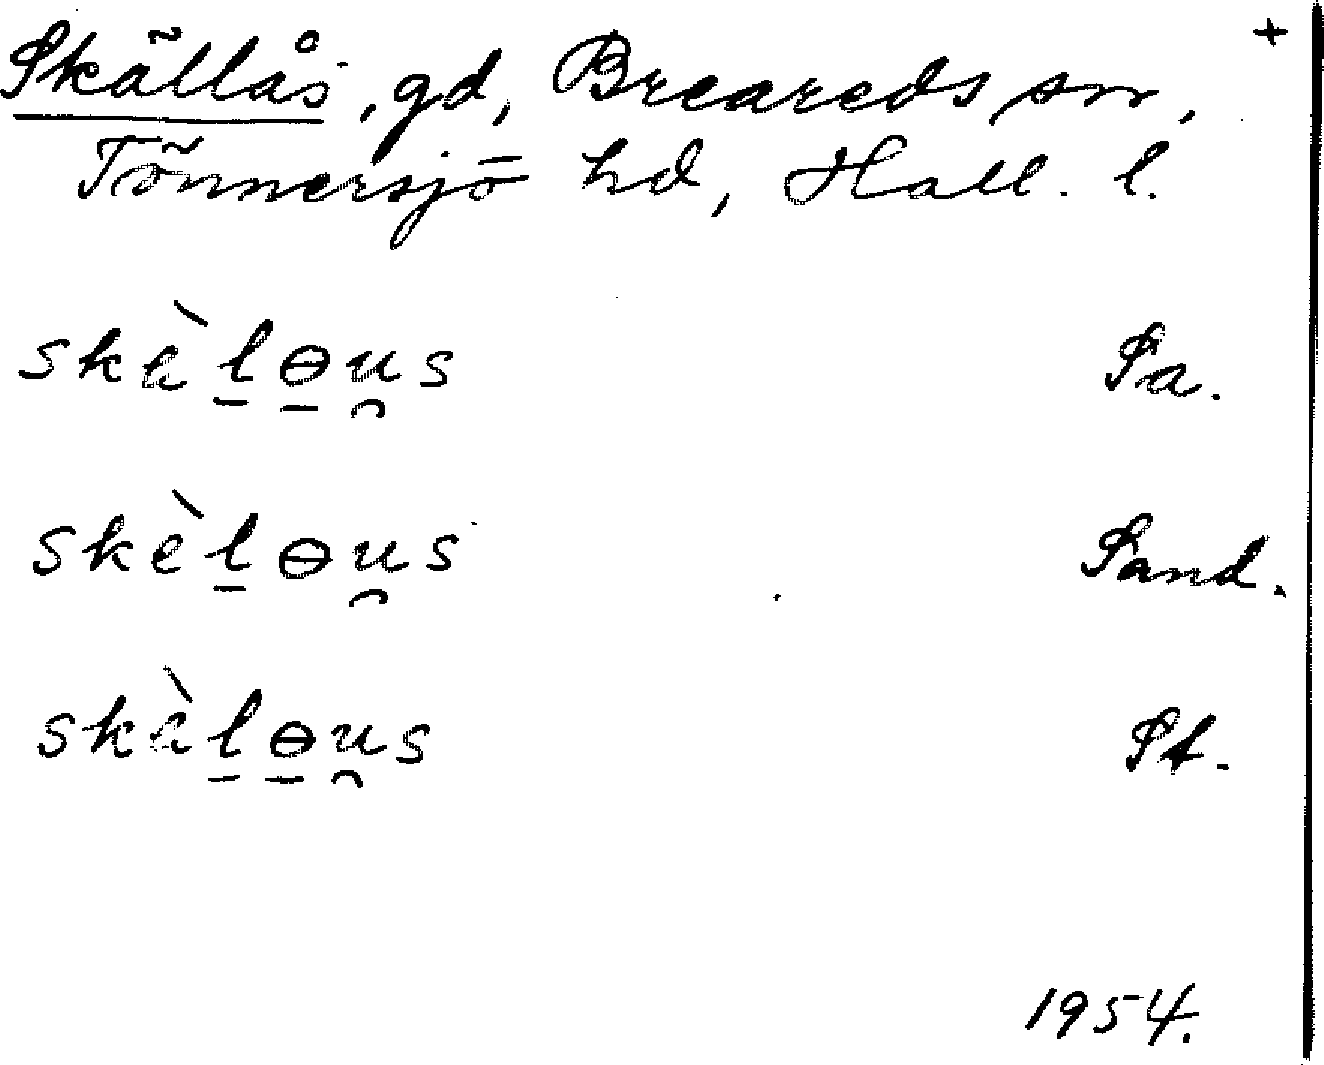 Skällås, gd, Breareds sn, +
Tönnersjö hd, Hall. l.
skὲl̠ɵ̠u̯s Sa.
skèl̠ɵu̯s Sand.
skὲl̠ɵ̠u̯s St.
1954.